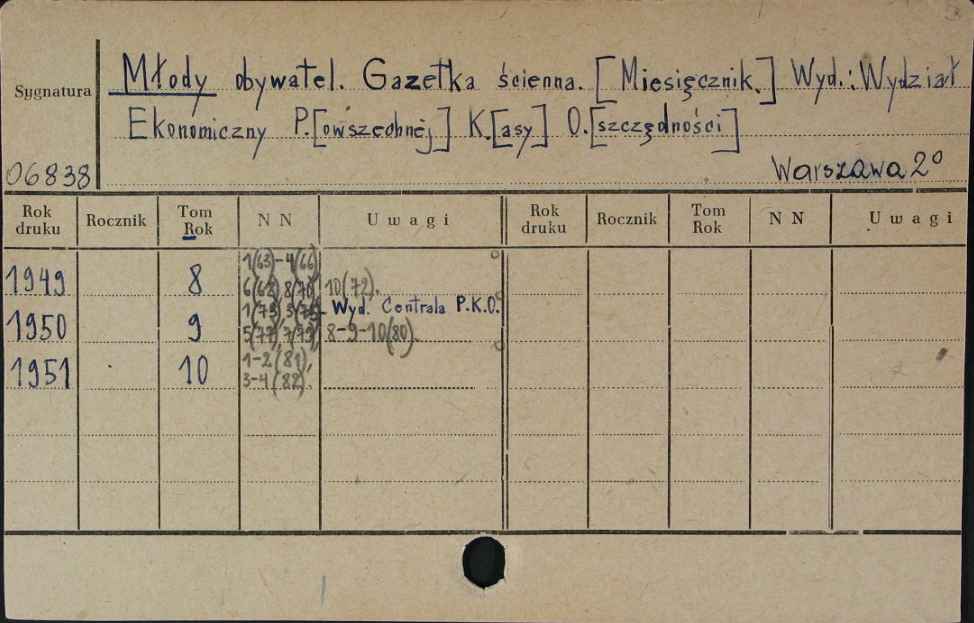 Młody obywatel. Gazetka ścienna. [Miesięcznik.] Wyd.: Wydział
Sygnatura
Ekonomiczny P.[owszechnej] K.[asy] O.[szczędności]
06838
Warszawa 2°
Rok druku Rocznik Tom Rok NN Uwagi Rok druku Rocznik Tom Rok NN Uwagi
1949 8 1(63)-4(66)
6(68), 8(70), 10(72).
1950 9 1(73), 3(75), Wyd. Centrala P.K.O.
5(77), 7(79), 8-9-10(80).
1951 10 1-2(81),
3-4(82).